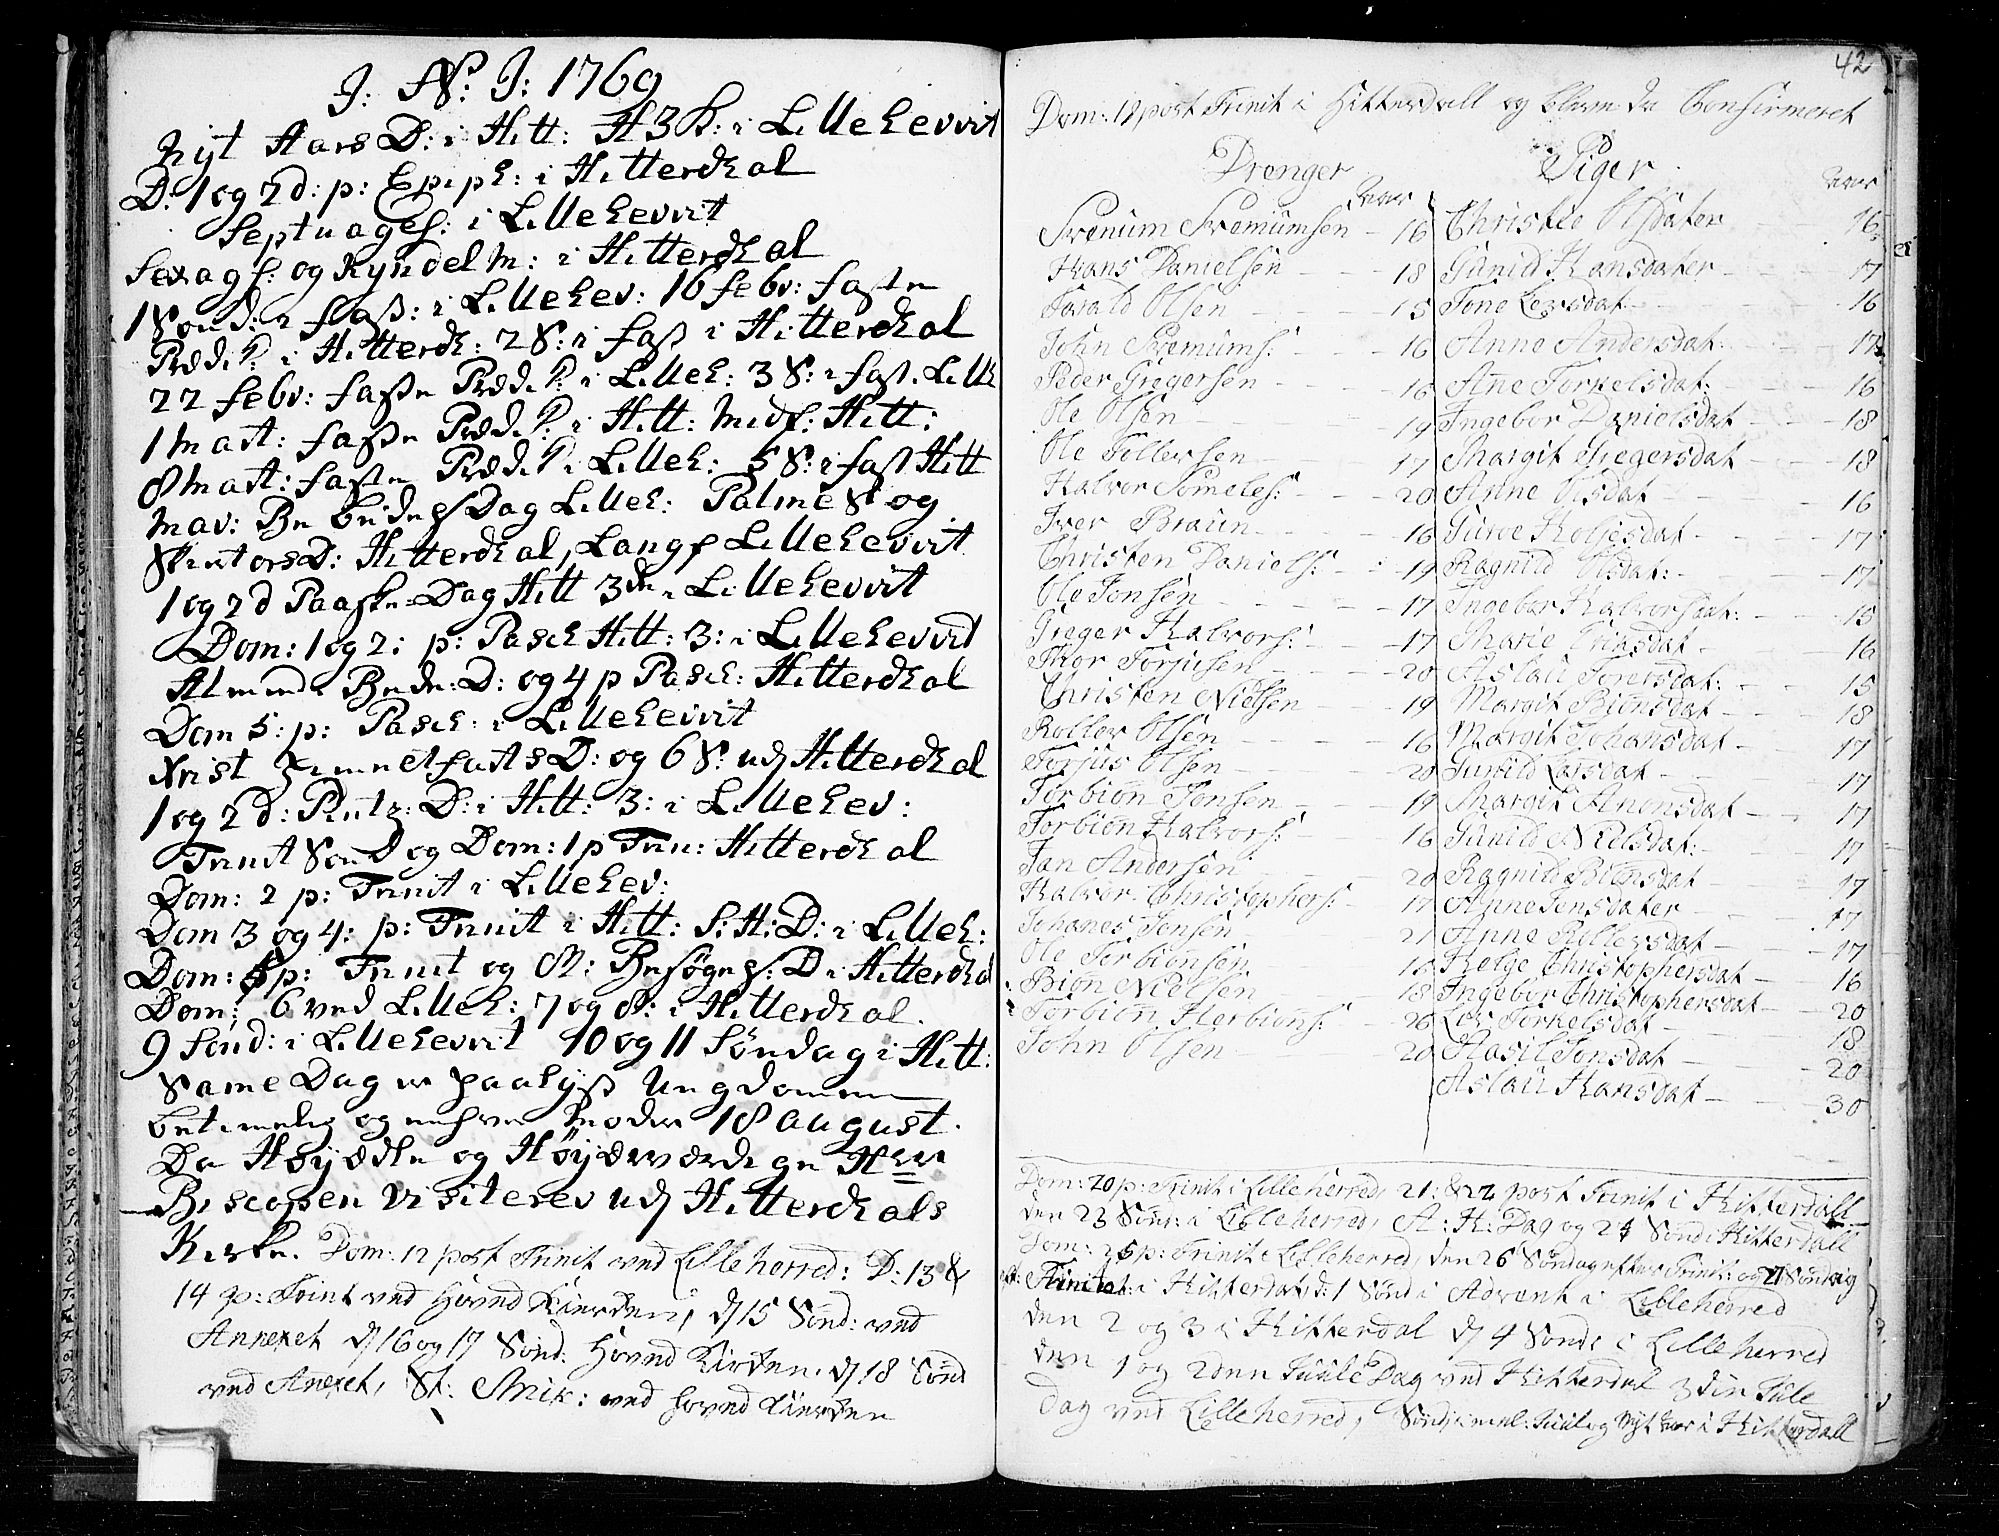 J: N: J: 1769
Nyt Aars D: i Hitt: H 3 K: i Lilleherrit
D. 1 og 2 d: p: Epiph: i Hitterdhal
Septuages: i Lilleherrit
Sexags: og Kyndelm: i Hitterdhal
1 Sønd: i Fast: i Lilleher: 16 Febr: Fasten
Prædik: i Hitterdh: 2 S: i Fast i Hitterdhal
22 Febr: Faste Prædik: i Lilleh: 3 S: i fast. Lilleh
1 Mart: Faste Prædik: i Hitt: Midf: Hitt:
8 Mart: Faste Prædik i Lilleh: 5 S: i fast Hitt
Mar: Bebudes Dag Lilleh: Palme S og
Skiertors D: Hitterdhal, Langf Lilleherrit
1 og 2 d Paaske-Dag Hitt 3de i Lilleherrit
Dom: 1 og 2: p: Pasch Hitt: 3: i Lilleherrit
Almind: Bede: D: og 4 p Pasch: Hitterdhal
Dom 5: p: Pasch: i Lilleherrit
Xrist Himmelfarts D: og 6 S: ud Hitterdhal
1 og 2 d: Pintz: D: i Hitt: 3: i Lilleher:
Trinit Sønd og Dom: 1 p Trin: Hitterdhal
Dom: 2 p: Trinit i Lilleher:
Dom 3 og 4: p: Trinit i Hitt: S: H: D: i Lilleh:
Dom: 5 p: Trinit og M: Besøgels: D i Hitterdhal
Dom: 6 ved Lilleh: 7 og 8: i Hitterdhal.
9 Sønd: i Lilleherrit 10 og 11 Søndag i Hitt:
Same Dag er paalyst Ungdommen
betimelig og enhver Moder 18 august.
Da Høyædle og Høyærværdige Herr
Biscopen visiterer ud Hitterdhals
Kirke. Dom: 12 post Trinit ved Lilleherred: D: 13 &
14 p: Trinit ved Hoved Kierken, d 15 Sønd: ved
Annexet d 16 og 17 Sønd: Hoved Kirken. d 18 Sønd
ved Anexet, St: Mik: ved Hoved Kierken
42
Dom: 19 post Trinit i Hitterdall og bleve da Confirmeret
Drenger Piger
Aar Aar
Svenum Svenumsen - 16 Christie Olsdater 16
Hans Danielsen - 18 Gunild Hansdater - 17
Harald Olsen 15 Tone Leersdat 16
John Svenums: 16 Anne Andersdat: 17
Peder Gregersen 16 Ane Torkelsdat: 16
Ole Olsen 19 Ingebor Danielsdat 18
Ole Tollevsen 17 Margit Gregersdat 18
Halvor Someles: 20 Anne Olsdat 16
Iver Braun 16 Guroe Holjesdat 17
Christen Daniels: 19 Ragnild Olsdat: 17
Ole Jonsen 17 Ingebor Halvorsdat: 15
Greger Halvors: 17 Marie Eriksdat 16
Thor Torjusen 20 Aslau Toresdat: 15
Christen Nielsen 19 Margit Biønsdat 18
Roller Olsen 16 Margit Johansdat 17
Torjus Olsen 20 Gunild Larsdat 17
Torbiøn Jonsen 19 Margit Anonsdat 17
Torbiøn Halvors: 16 Gunild Nielsdat: 17
Jan Andersen 20 Ragnild Biønsdat 17
Halvor Christophers: 17 Anne Jensdater 17
Johanes Jonsen 21 Anne Rollevsdat 17
Ole Torbiønsen 16 Helge Christophersdat 16
Biøn Nielsen 18 Ingebor Christophersdat 20
Torbiøn Herbiøns: 26 Lov Torkelsdat 18
John Olsen 20 Aasil Jonsdat 20
Aslau Hansdat 30
Dom: 20 p: Trinit i Lilleherred, 21: & 22 post Trinit i Hitterdall
den 23 Sønd: i Lilleherred, A: H: Dag og 24 Sønd i Hitterdall
Dom: 25 p: Trinit i Lilleherred, den 26 Søndag efter Trinit: og 27 Søndag
eft: Trinitat: i Hitterdal, d: 1 Sønd i Advent i Lilleherred
den 2 og 3 i Hitterdal d 4 Sønd: i Lilleherred
den 1 og 2den Juule Dag ved Hitterdal 3die Jule
Dag ved Lilleherred, Sønd: imel: Juul og Nyt Aar i Hitterdall